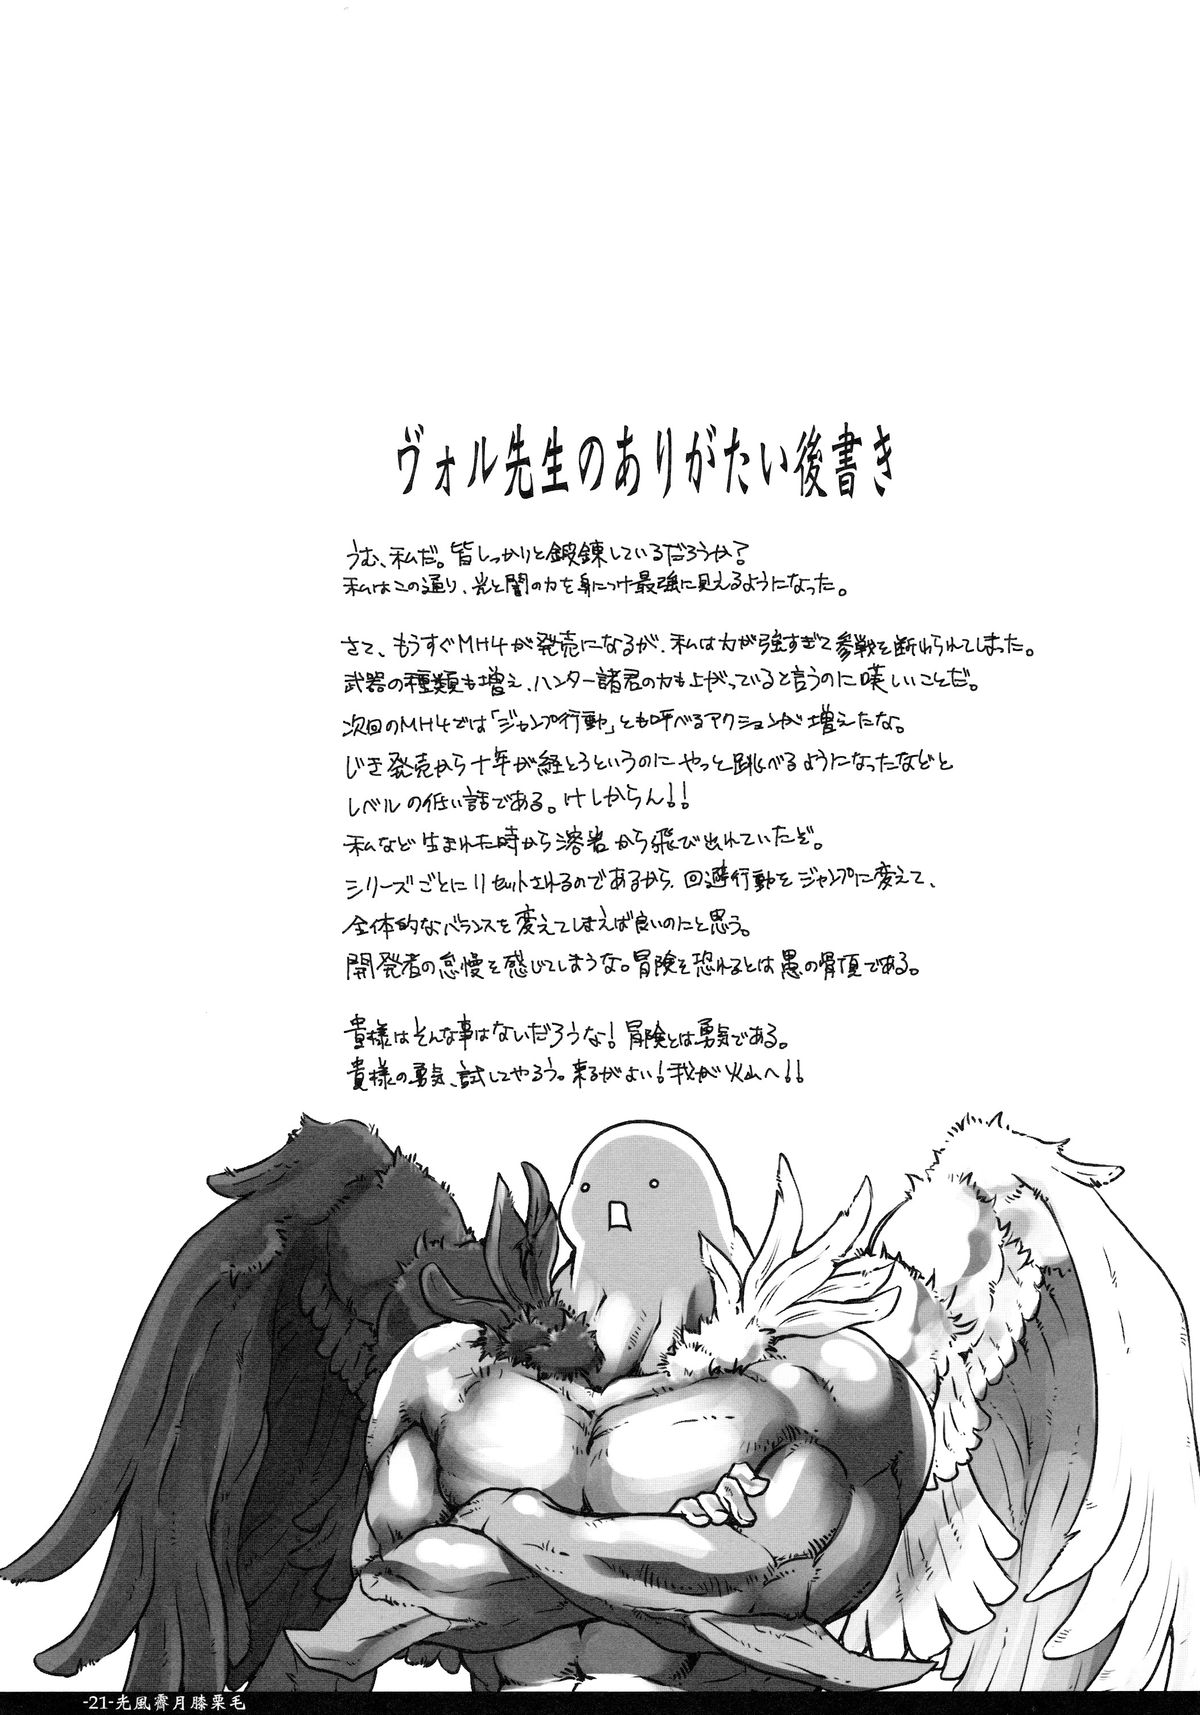 ヴォル先生のありがたい後書き
うむ、私だ。皆しっかりと鍛錬しているだろうか?
私はこの通り、光と闇の力を身につけ最強に見えるようになった。
さて、もうすぐMH4が発売になるが、私は力が強すぎて参戦を断わられてしまった。
武器の種類も増え、ハンター諸君の力も上がっていると言うのに嘆しいことだ。
次回のMH4では「ジャンプ行動」とも呼べるアクションが増えたな。
じき発売から十年が経とうというのにやっと跳べるようになったなどと
レベルの低い話である。けしからん!!
私など生まれた時から溶岩から飛び出れていたぞ。
シリーズごとにリセットされるのであるから、回避行動をジャンプに変えて、
全体的なバランスを変えてしまえば良いのにと思う。
開発者の怠慢を感じてしまうな。冒険を恐れるとは愚の骨頂である。
貴様はそんな事はないだろうな!冒険とは勇気である。
貴様の勇気、試してやろう。来るがよい!我が火山へ!!
-21-光風霽月膝栗毛